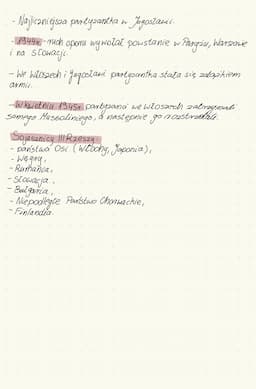 - Najliczniejsza partyzantka w Jugosławii.
- 1944r. ruch oporu wywołał powstanie w Paryżu, Warszawie
i na Słowacji.
- We Włoszech i Jugosławii partyzantka stała się zalążkiem
armii.
- W kwietniu 1945r. partyzanci we Włoszech zatrzymali
samego Mussoliniego, a następnie go rozstrzelali.
Sojusznicy III Rzeszy:
- państwa Osi (Włochy, Japonia),
- Węgry,
- Rumunia,
- Słowacja,
- Bułgaria,
- Niepodległe Państwo Chorwackie,
- Finlandia.